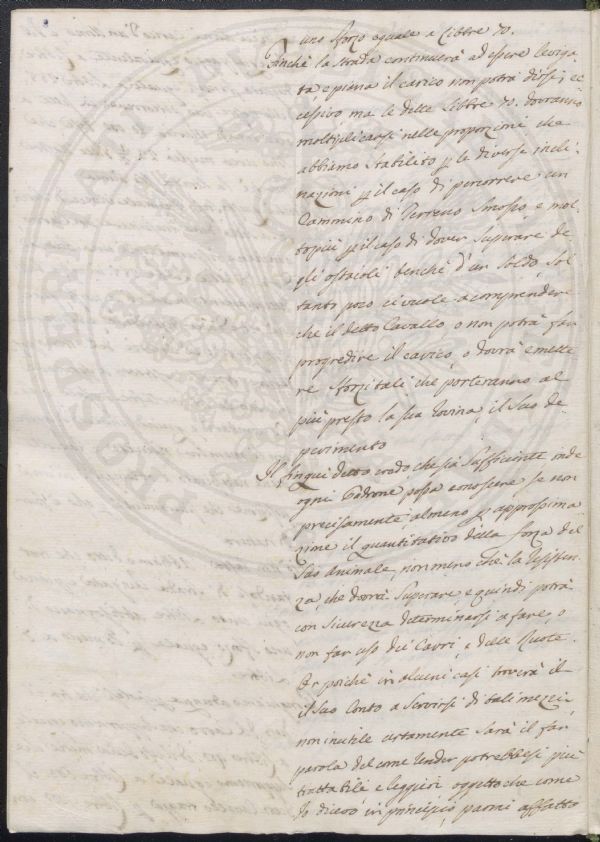 uno sforzo eguale a Libbre 70.
Finchè la Strada continuerà ad essere leviga-
ta, e piana il carico non potrà dirsi ec-
cessivo, ma le dette Libbre 70. dovranno
moltiplicarsi nelle proporzioni che
abbiamo Stabilito p le diverse incli-
nazioni p il caso di percorrere un
Cammino di Terreno Smosso, e mol-
topiù p il caso di dover Superare de-
gli ostacoli benchè d'un Soldo, Sol
tanto poco ci vuole a comprendere
che il detto Cavallo o non potrà far
progredire il carico, o dovrà emette-
re Sforzi tali che porteranno al
più presto la sua rovina, il Suo de-
perimento
Il finquì detto credo che sia Sufficiente onde
ogni Padrone possa conoscere se non
precisamente almeno p approssima
zione il quantitativo della forza del
Suo Animale, non meno che la resisten-
za, che dovrà Superare, e quindi potrà
con Sicurezza determinarsi a fare, o
non far uso dei Carri, e delle Ruote.
Or poichè in alcuni casi troverà il
il Suo Conto a Servirsi di tali mezzi,
non inutile certamente Sarà il far
parola del come render potrebbesi più
trattabile e leggieri oggetto che come
Io dicevo in principio, parmi affatto